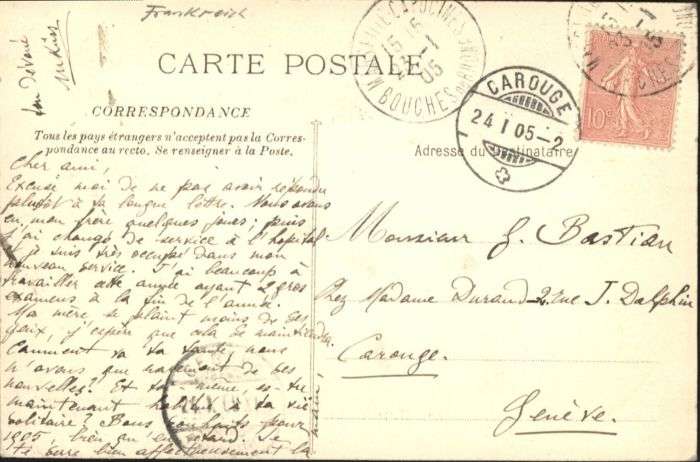 Frankreich
ton dévoué
CARTE POSTALE
CORRESPONDANCE
Tous les pays étrangers n'acceptent pas la Corres-
pondance au recto. Se renseigner à la Poste.
BOUCHES
15 15
23 1
05
CAROUGE
24 I 05-2
10c
Adresse du Destinataire
Cher ami,
Excuse moi de ne pas avoir répondu
plutôt à ta longue lettre. Nous avons
eu mon frère quelques jours; puis
j'ai changé de service à l'hôpital
je suis très occupé dans mon
nouveau service. J'ai beaucoup à
travailler cette année ayant 2 gros
examens à la fin de l'année.
Ma mère se plaint moins de ses
yeux, j'espère que cela se maintiendra.
Comment va ta santé, nous
n'avons que rarement de tes
nouvelles? Et toi-même, es-tu
maintenant habitué à ta vie
solitaire? Bons souhaits pour
1905, bien qu'en retard. Je
te serre bien affectueusement la
main
Monsieur G. Bastian
Chez Madame Durand 2, rue J. Dalphin
Carouge.
Genève.